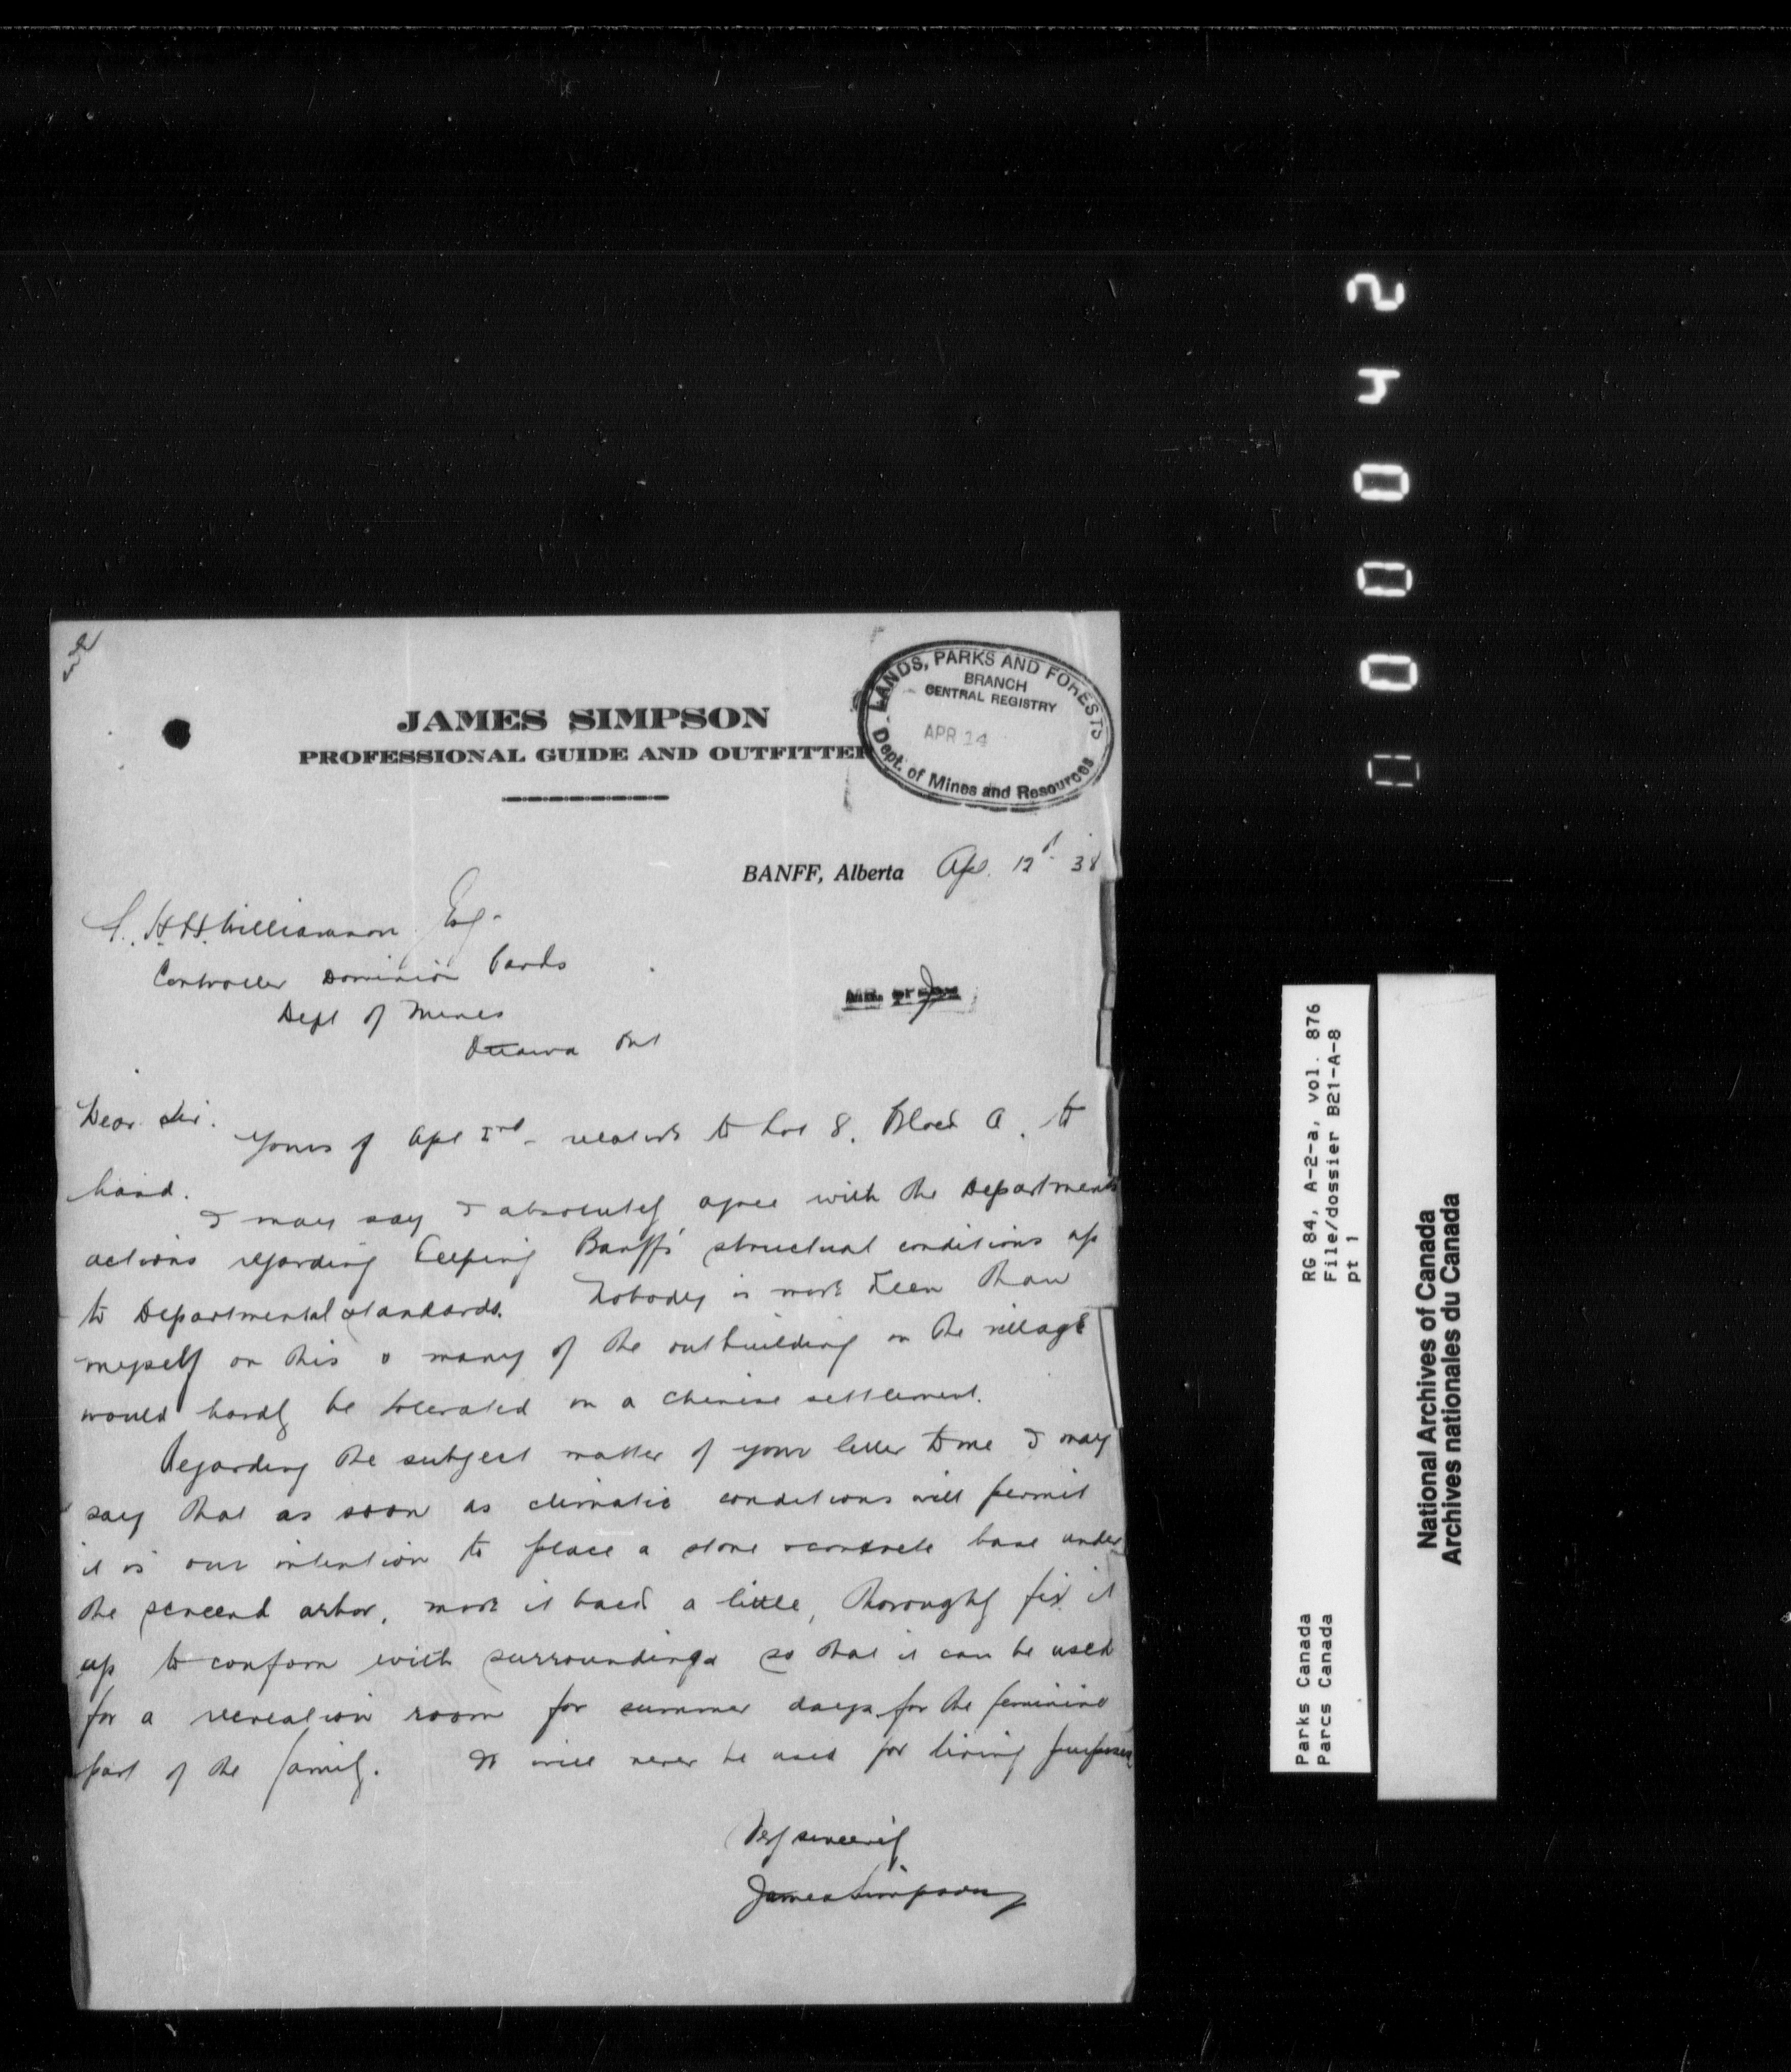 JAMES SIMPSON
PROFESSIONAL GUIDE AND OUTFITTER
LANDS, PARKS AND FORESTS
BRANCH
CENTRAL REGISTRY
APR 14
Dept. of Mines and Resources
BANFF, Alberta Apl. 12th 38
H. H. Williamson Esq.
Controller Dominion Parks
Dept of Mines
Ottawa Ont
Dear Sir.
Yours of Apl 2nd - relative to Lot 8, Block A. to
hand.
I may say I absolutely agree with the Departments
actions regarding keeping Banff's structual conditions up
to Departmental standards. Nobody is more keen than
myself on this & many of the outbuilding in the village
would hardly be tolerated in a chinese settlement.
Regarding the subject matter of your letter to me I may
say that as soon as climatic conditions will permit
it is our intention to place a stone & concrete base under
the screend arbor, move it back a little, thoroughly fix it
up to conform with surroundings so that it can be used
for a recreation room for summer days for the feminine
part of the family. It will never be used for living purposes
Very sincerely
James Simpson
000042
RG 84, A-2-a, vol. 876
File/dossier B21-A-8
pt 1
Parks Canada
Parcs Canada
National Archives of Canada
Archives nationales du Canada